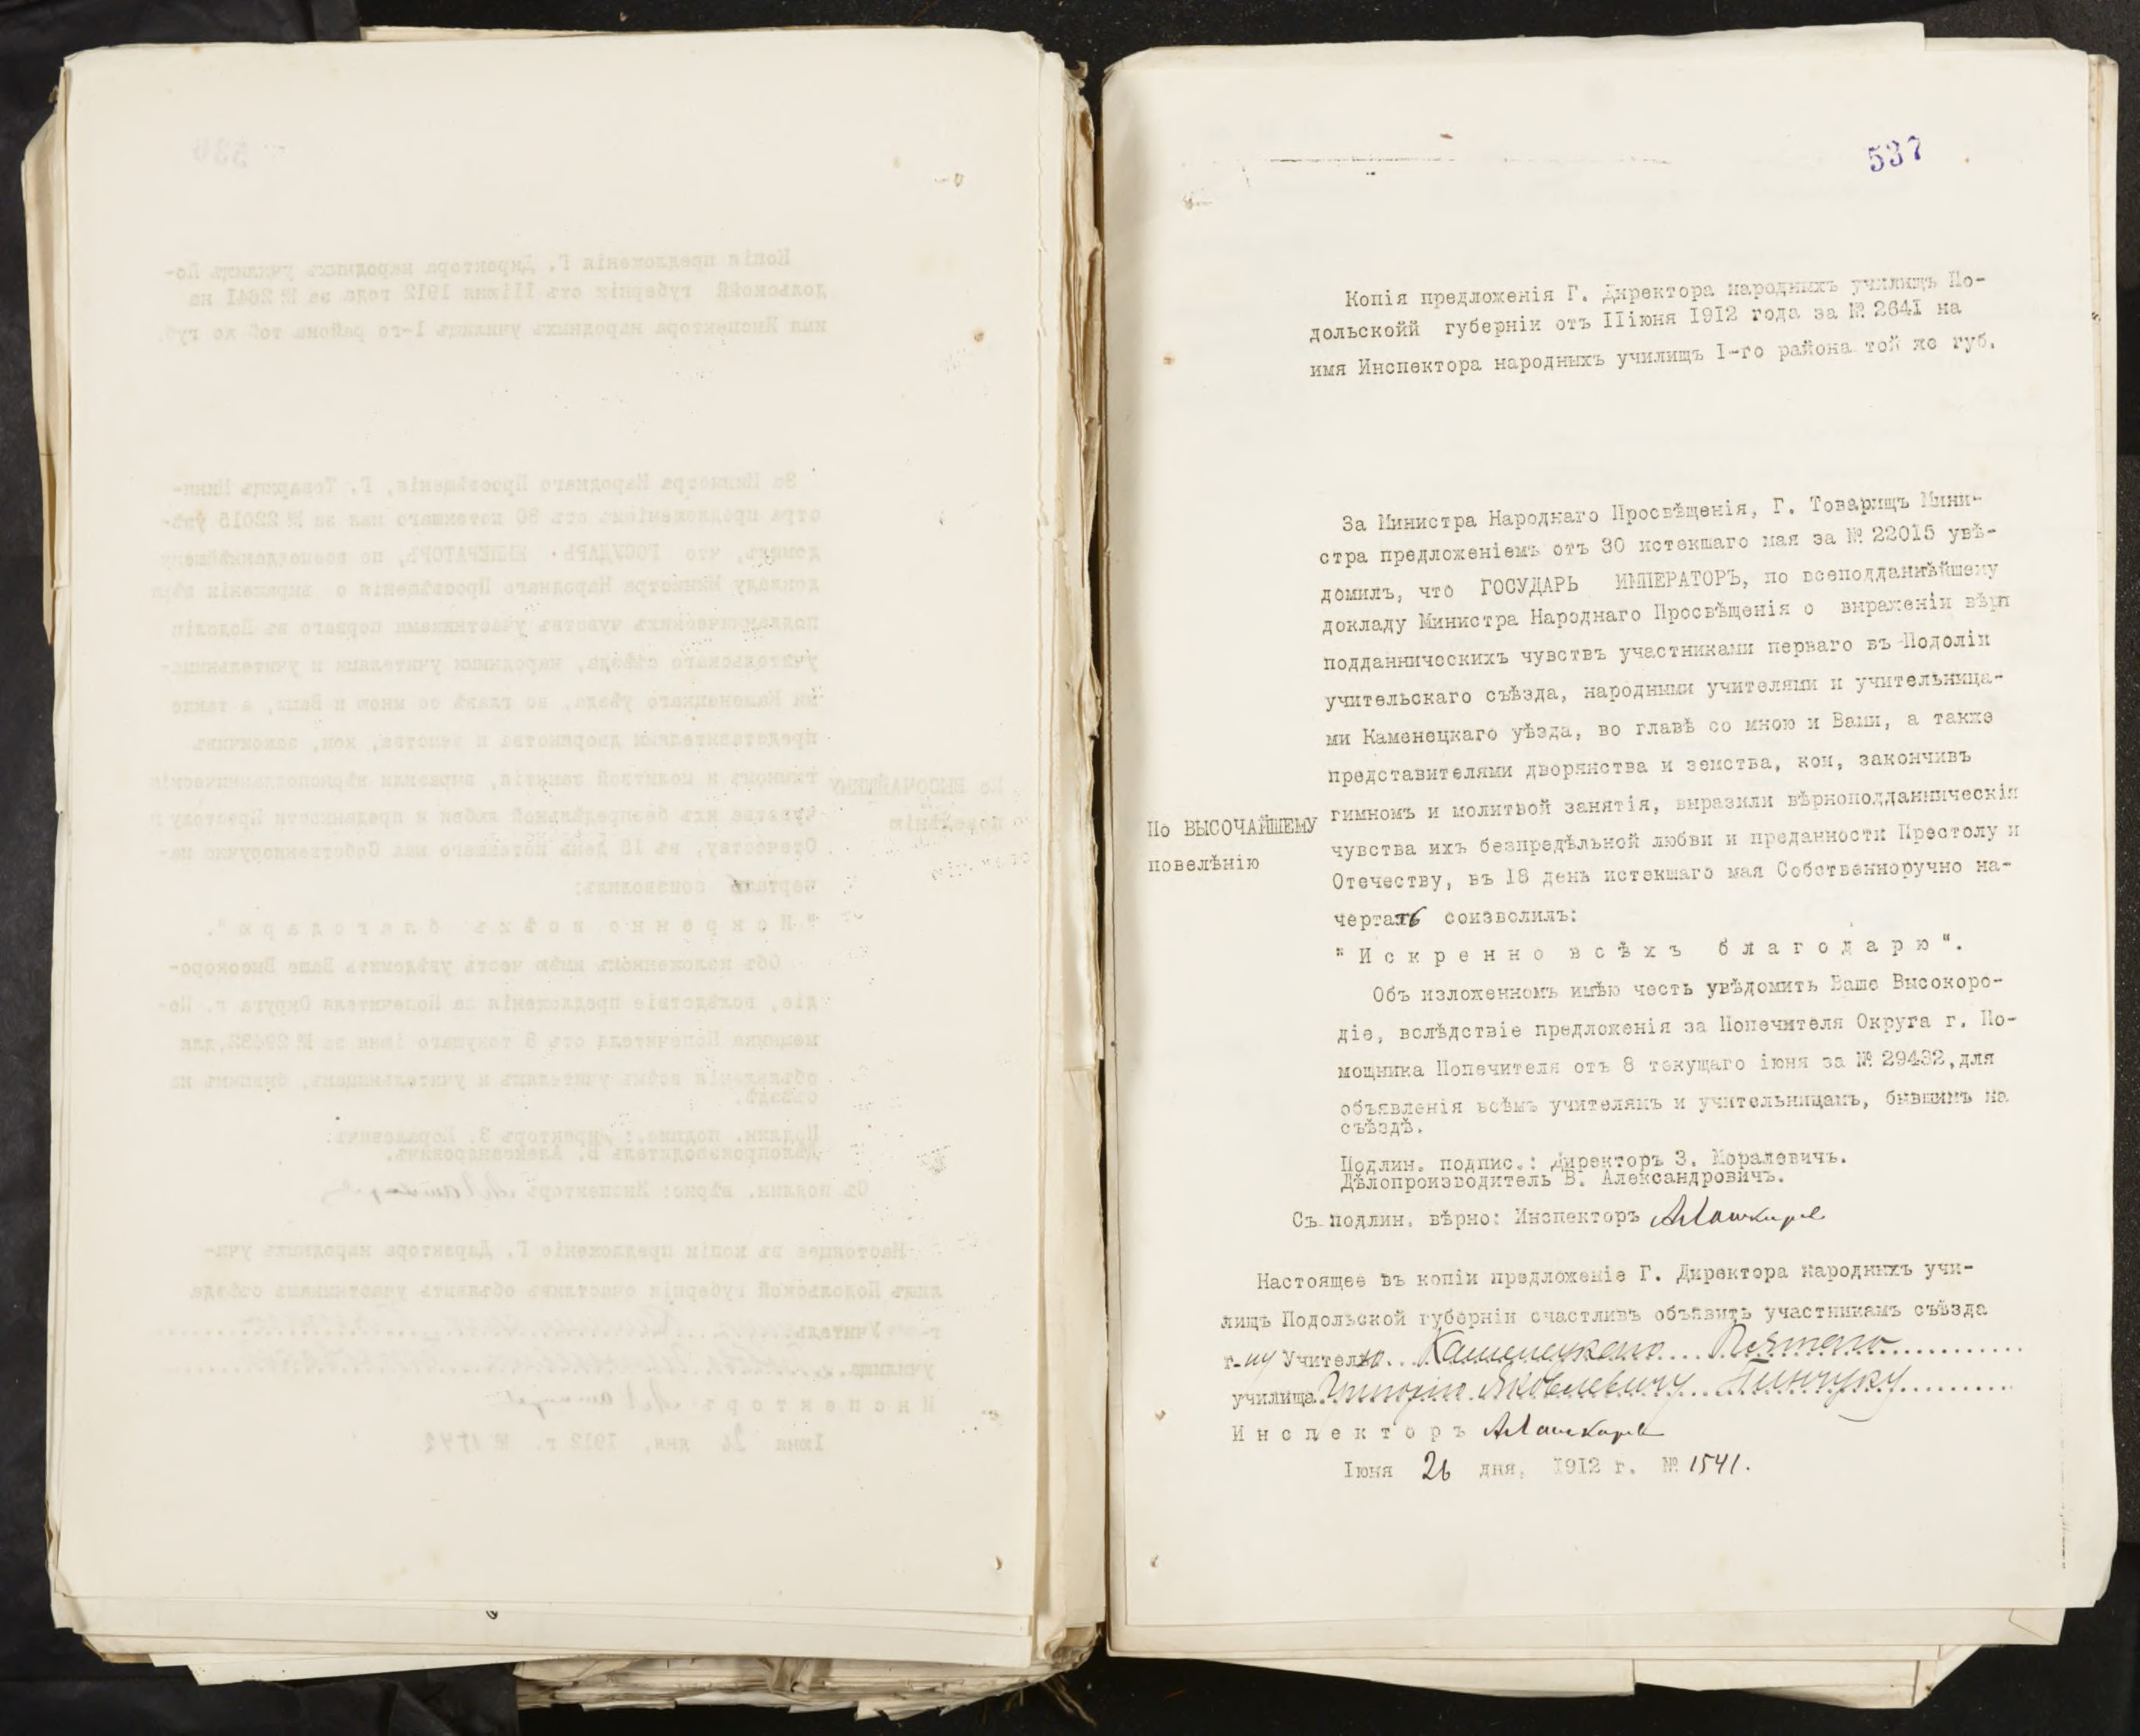 537
Копія предложенія Г. Директора народныхъ училищъ По-
дольскойй губерніи отъ IIіюня 1912 года за № 2641 на
имя Инспектора народныхъ училищъ I-го района той же губ.
За Министра Народнаго Просвѣщенія, Г. Товарищъ Мини-
стра предложеніемъ отъ 30 истекшаго мая за № 22015 увѣ-
домилъ, что ГОСУДАРЬ ИМПЕРАТОРЪ, по всеподданнѣйшему
докладу Министра Народнаго Просвѣщенія о выраженіи вѣрн
подданническихъ чувствъ участниками перваго въ Подоліи
учительскаго съѣзда, народными учителями и учительница-
ми Каменецкаго уѣзда, во главѣ со мною и Вами, а также
представителями дворянства и земства, кои, закончивъ
гимномъ и молитвой занятія, выразили вѣрноподданническія
По ВЫСОЧАЙШЕМУ
повелѣнію
чувства ихъ безпредѣльной любви и преданности Престолу и
Отечеству, въ 18 день истекшаго мая Собственноручно на-
чертать соизволилъ:
"Искренно всѣхъ благодарю".
Объ изложенномъ имѣю честь увѣдомить Ваше Высокоро-
діе, вслѣдствіе предложенія за Попечителя Округа г. По-
мощника Попечителя отъ 8 текущаго іюня за № 29432,для
объявленія всѣмъ учителямъ и учительницамъ, бывшимъ на
съѣздѣ.
Подлин. подпис.: Директоръ З. Моралевичъ.
Дѣлопроизводитель В. Александровичъ.
Съ подлин. вѣрно: Инспекторъ
Настоящее въ копіи предложеніе Г. Директора народныхъ учи-
лищъ Подольской губерніи счастливъ объявить участникамъ съѣзда
г-ну Учителю...Каменецкаго....Пятаго............
училища Григорію Яковлевичу Пинчуку
Инспекторъ
Іюня 26 дня, 1912 г. № 1541.